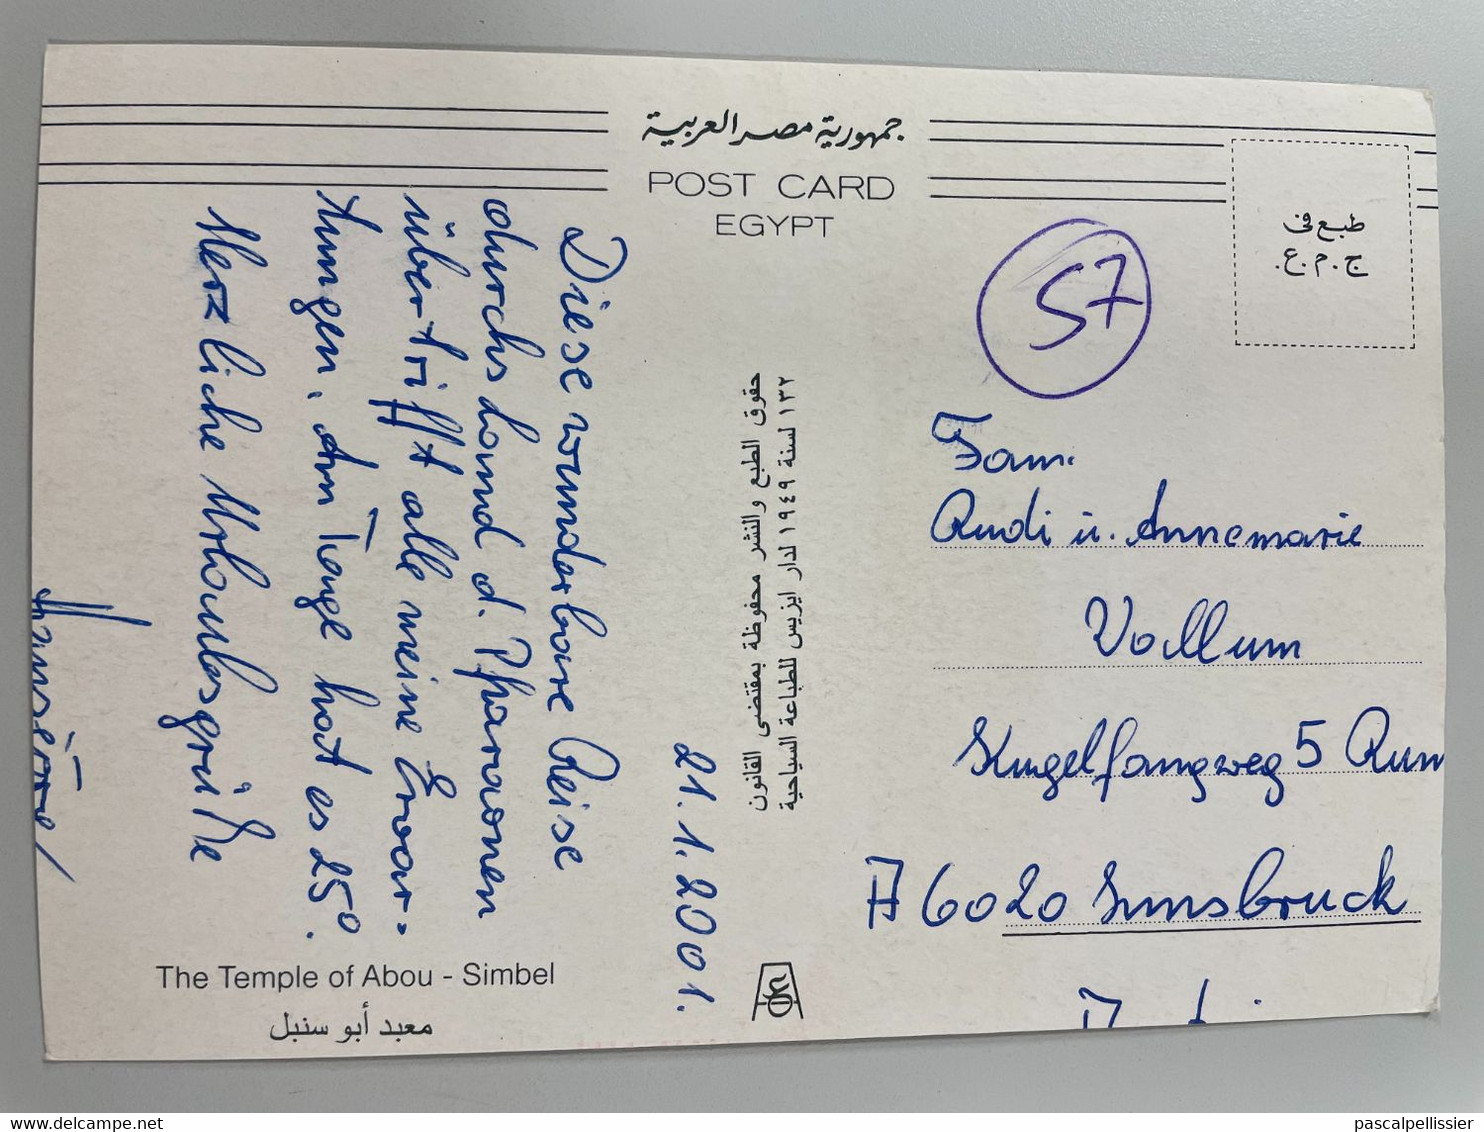 جمهورية مصر العربية
POST CARD
EGYPT
طبع فى
ج.م.ع.
57
21.1.2001.
Diese wunderbare Reise
durchs Land d. Pharaonen
übertrifft alle meine Erwar-
tungen. Am Tage hat es 25°.
Herzliche Urlaubsgrüße
حقوق الطبع والنشر محفوظة بمقتضى القانون
١٣٢ لسنة ١٩٤٩ لدار ايزيس للطباعة السياحية
Fam.
Rudi u. Annemarie
Vollum
Kugelfangweg 5 Rum
A 6020 Innsbruck
The Temple of Abou - Simbel
معبد أبو سنبل
delcampe.net
pascalpellissier